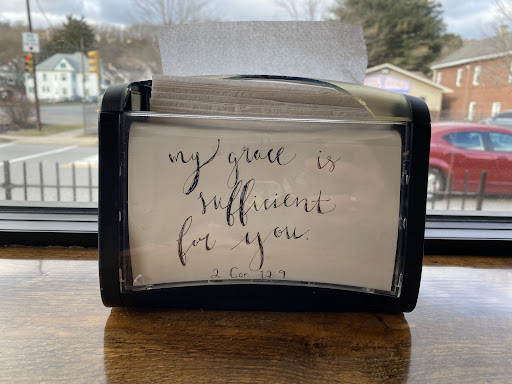 my grace is
sufficient
for you.
2 Cor 12 9